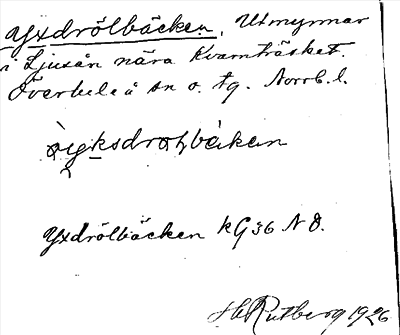 Yxdrölbäcken, Utmynnar
i Ljusån nära Kvarnträsket.
Överluleå sn o. tg. Norrb. l.
Yxdrölbäcken kG36 N8.
H. Rutberg 1926